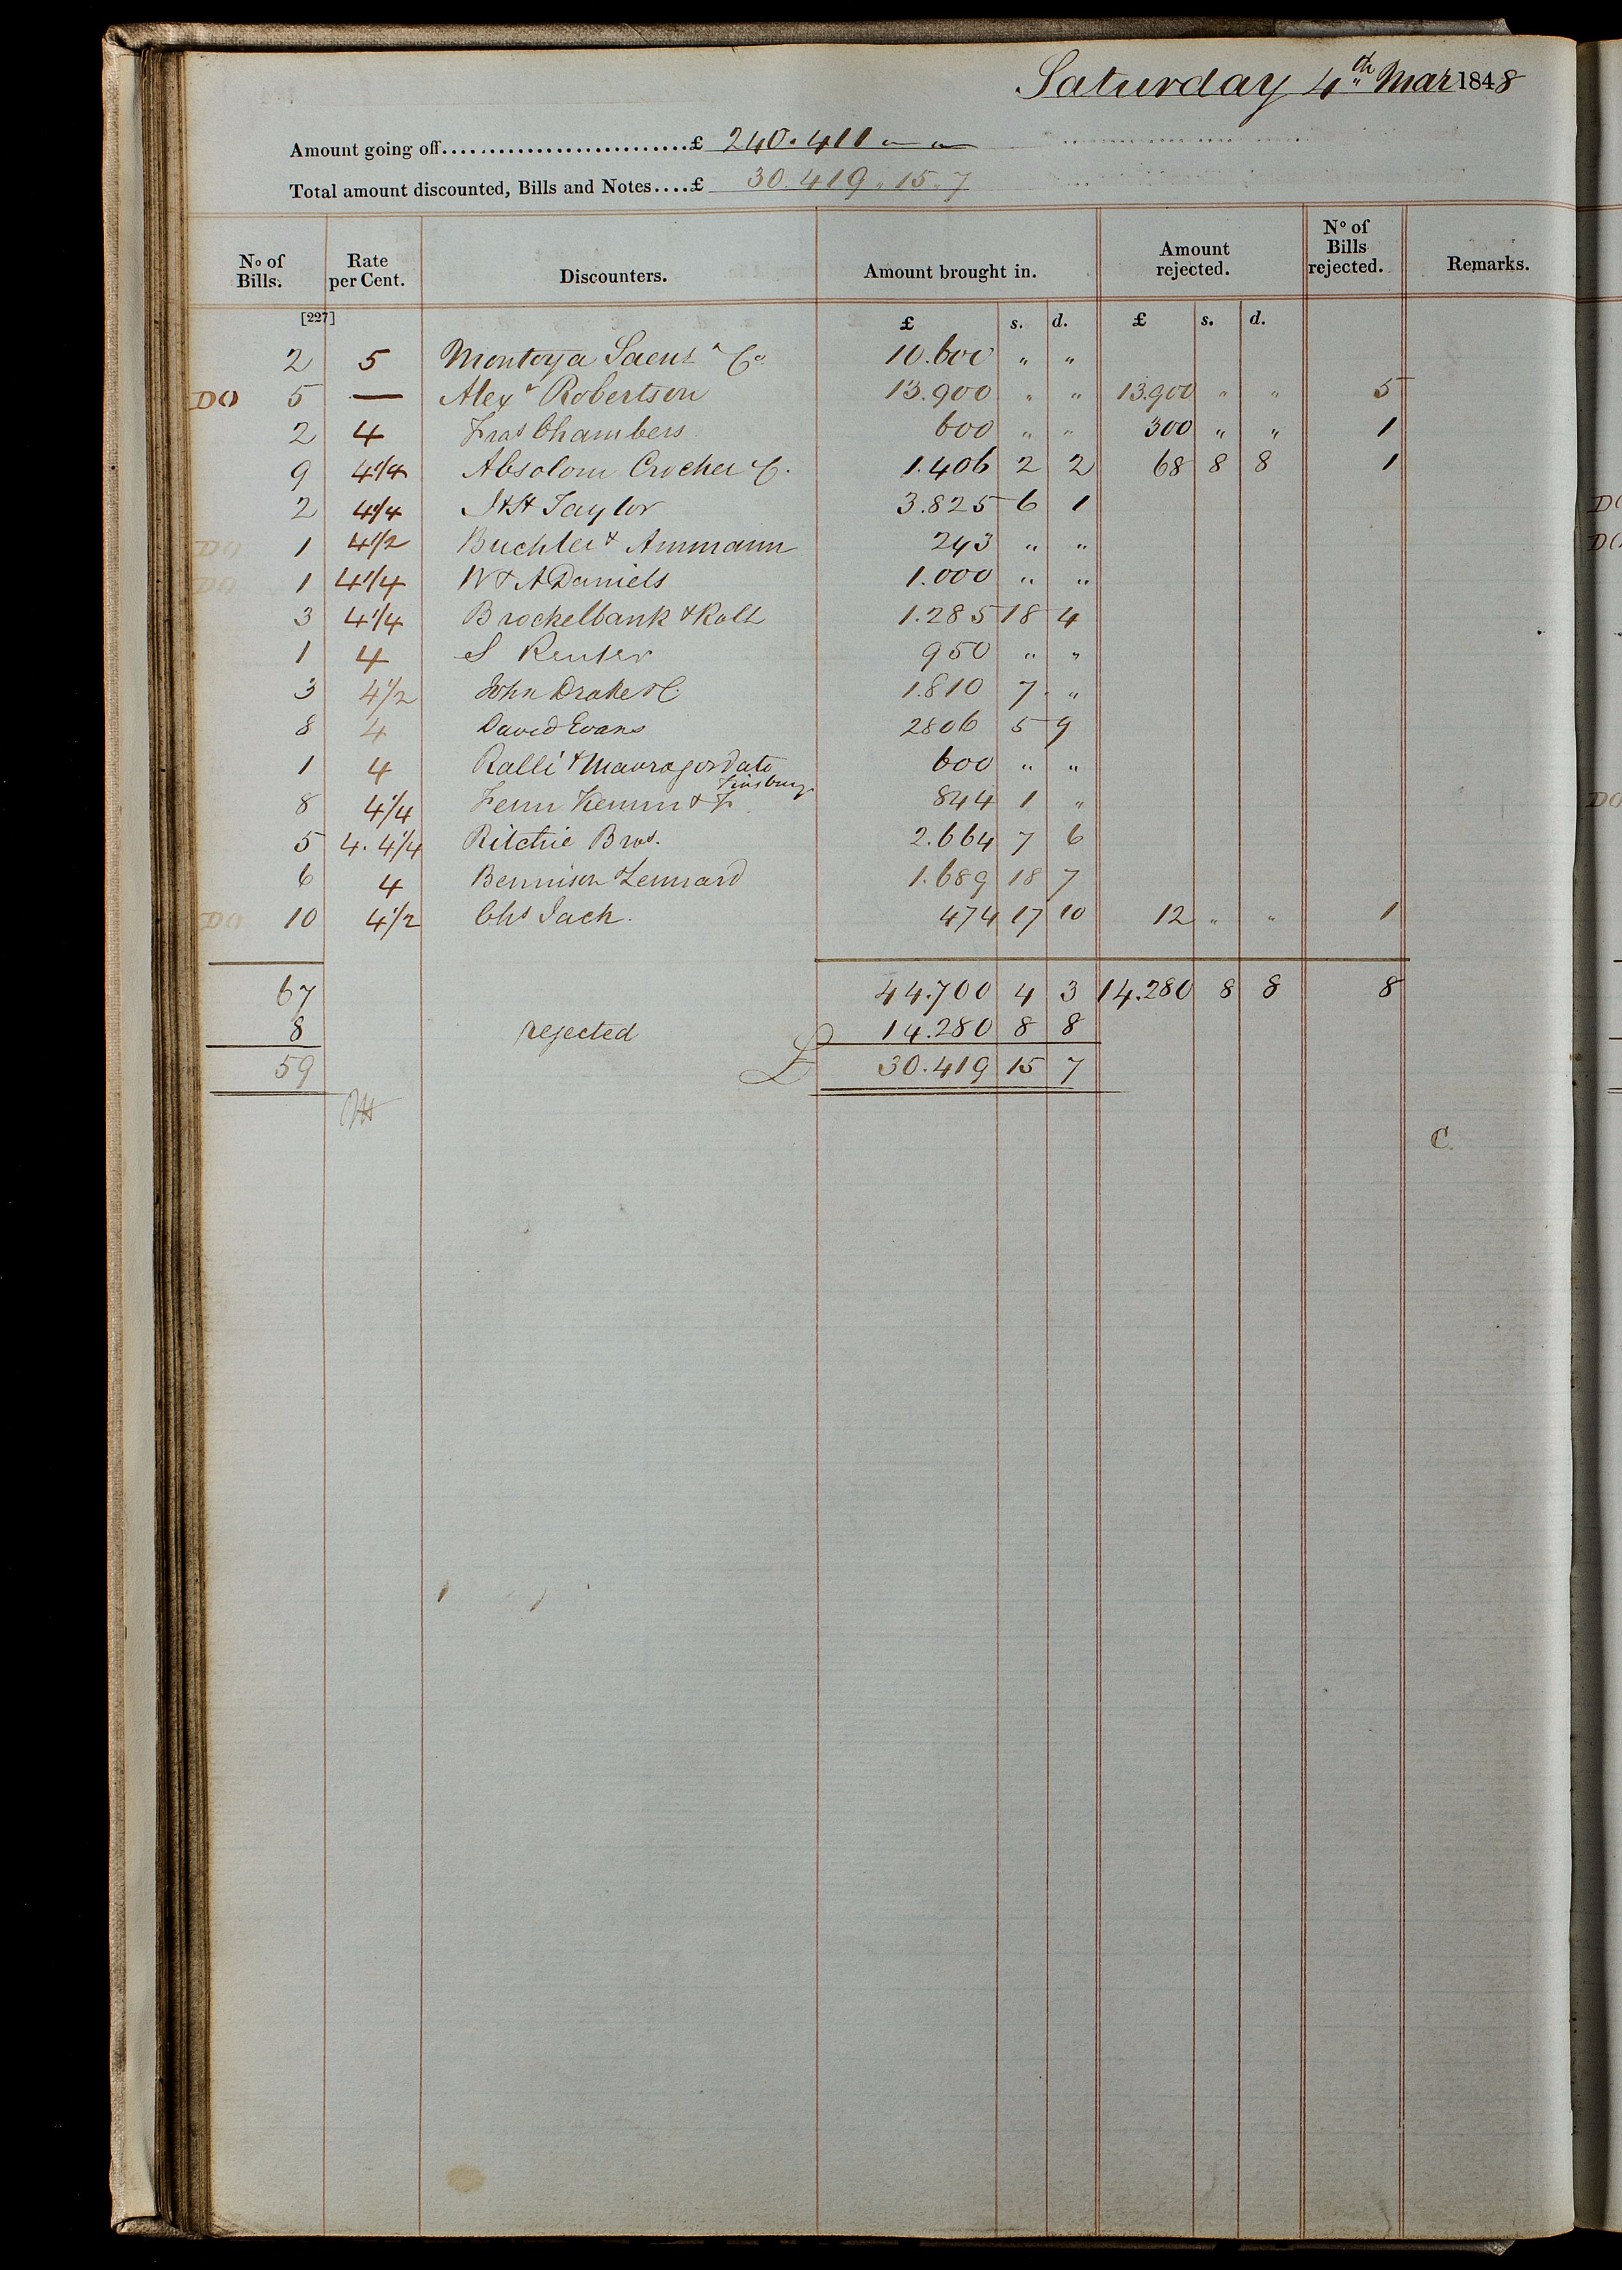 Saturday 4th Mar 1848
Amount going off...........................£ 240.411 " "
Total amount discounted, Bills and Notes....£ 30.419 " 15 " 7
No of Bills. Rate per Cent. Discounters. Amount brought in. Amount rejected. No of Bills rejected. Remarks.
[227] £ s. d. £ s. d.
2 5 Montoya Saenz & Co. 10.600 " "
DO 5 — Alexr Robertson 13.900 " " 13.900 " " 5
2 4 Fras Chambers 600 " " 300 " " 1
9 4 1/4 Absolom Crocker & C. 1.406 2 2 68 8 8 1
2 4 1/4 J & H Taylor 3.825 6 1
DO 1 4 1/2 Buchler & Ammann 243 " "
DO 1 4 1/4 W & A Daniels 1.000 " "
3 4 1/4 Brockelbank & Rolls 1.285 18 4
1 4 S Reuter 950 " "
3 4 1/2 John Drake & C. 1.810 7 "
8 4 David Evans 2806 5 9
1 4 Ralli & Mavrogordato 600 " "
8 4 1/4 Fenn Kemm & F Finsbury 844 1 "
5 4. 4 1/4 Ritchie Bros. 2.664 7 6
6 4 Bennison & Lennard 1.689 18 7
DO 10 4 1/2 Chs Jach. 474 17 10 12 " " 1
67 44.700 4 3 14.280 8 8 8
8 rejected 14.280 8 8
59 £ 30.419 15 7
C.